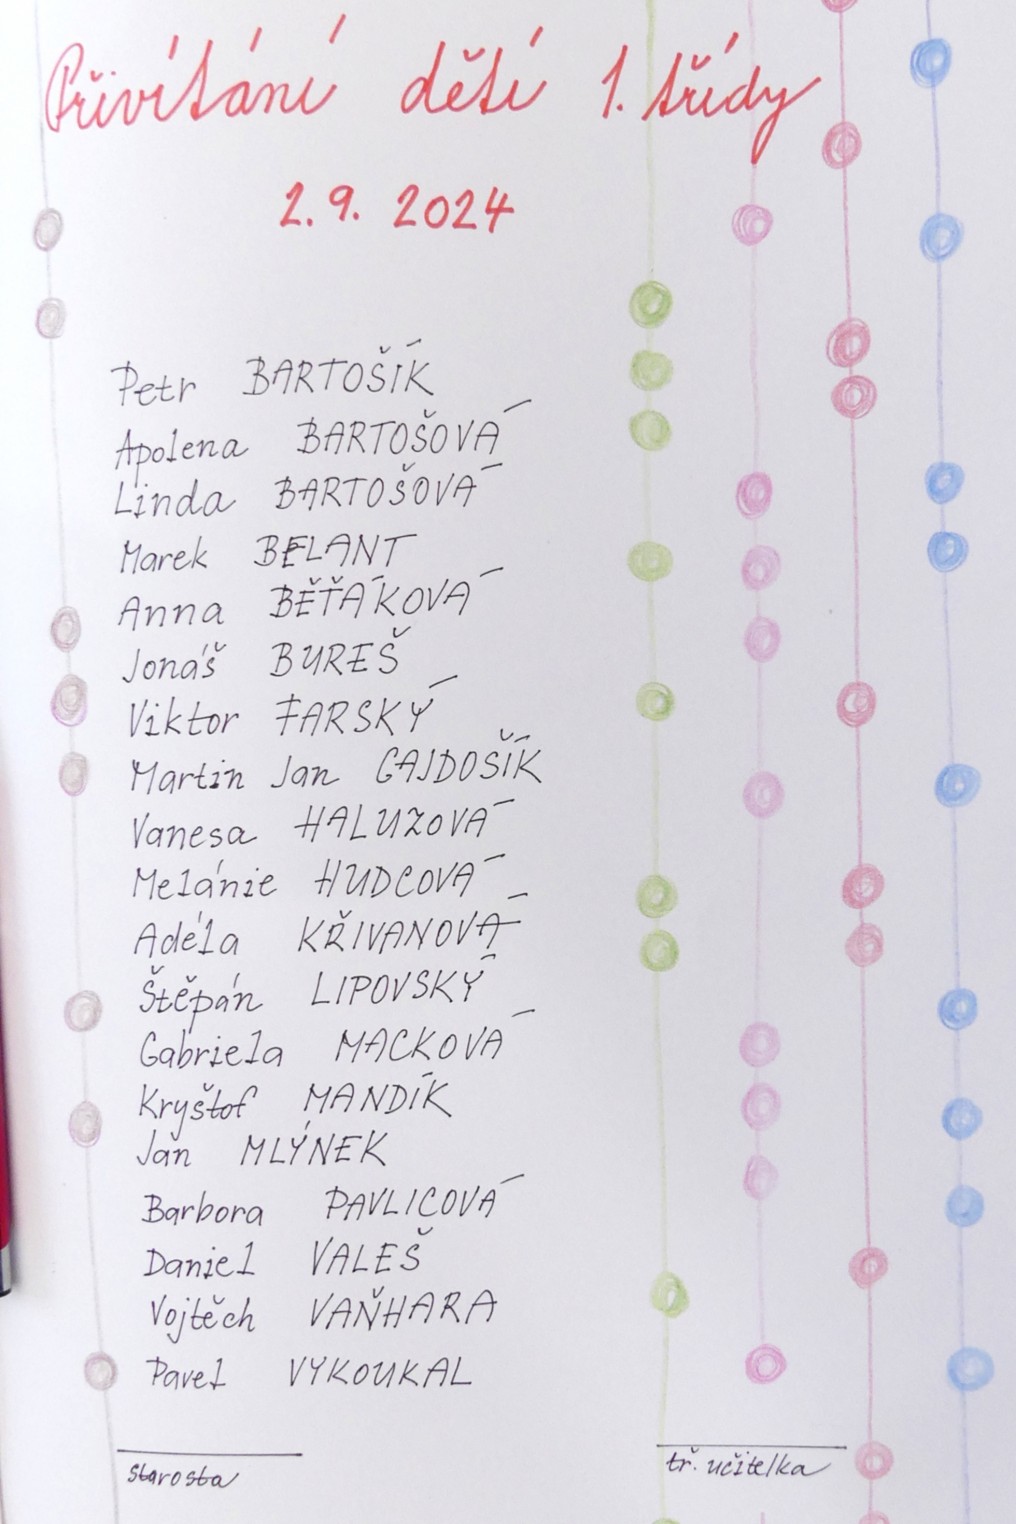 Přivítání dětí 1. třídy
2. 9. 2024
Petr BARTOŠÍK
Apolena BARTOŠOVÁ
Linda BARTOŠOVÁ
Marek BELANT
Anna BĚŤÁKOVÁ
Jonáš BUREŠ
Viktor FARSKÝ
Martin Jan GAJDOŠÍK
Vanesa HALUZOVÁ
Melánie HUDCOVÁ
Adéla KŘIVANOVÁ
Štěpán LIPOVSKÝ
Gabriela MACKOVÁ
Kryštof MANDÍK
Jan MLÝNEK
Barbora PAVLICOVÁ
Daniel VALEŠ
Vojtěch VAŇHARA
Pavel VYKOUKAL
starosta
tř. učitelka